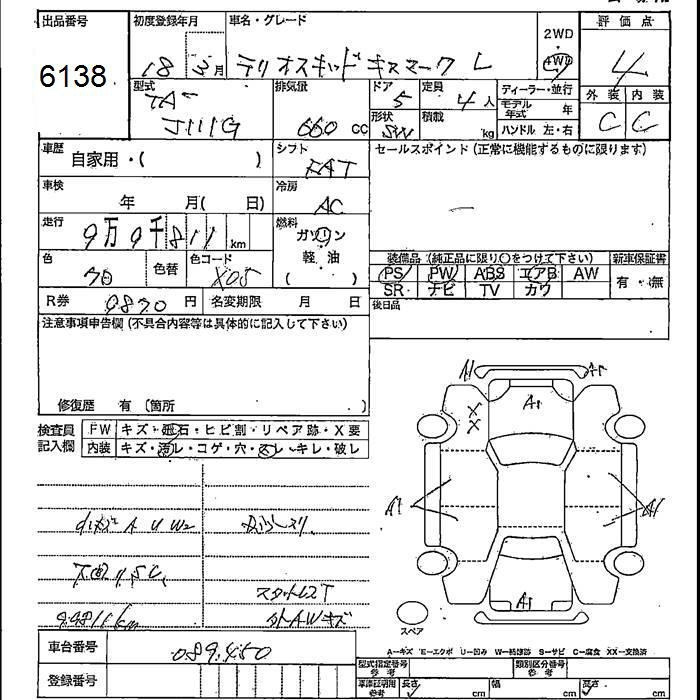 出品番号 初度登録年月 車名・グレード 2WD 評価点
6138 18 3月 テリオスキッド キスマーク L 4WD 4
型式 排気量 ドア 定員 ディーラー・並行 外装 内装
TA- 5 4人 モデル年式 年
J111G 660 CC 形状 積載 kg ハンドル 左・右 C C
SW
車歴 自家用・( ) シフト FAT セールスポイント (正常に機能するものに限ります)
車検 年 月( 日) 冷房 AC
走行 9万9千811km 燃料 ガソリン
軽・油
( )
色 色替 色コード X05
装備品 (純正品に限り○をつけて下さい) 新車保証書
PS PW ABS エアB AW 有・無
SR ナビ TV カワ
R券 9870円 名変期限 月 日 後日品
注意事項申告欄 (不具合内容等は具体的に記入して下さい)
修復歴 有 (箇所 )
検査員 FW キズ・飛石・ヒビ割・リペア跡・X要
記入欄 内装 キズ・汚レ・コゲ・穴・スレ・キレ・破レ
A1 A1
A1
X
X
A1 A1
A1
A U W2
スタットレスT
99811km 外AWキズ
スペア
A−キズ E−エクボ U−凹み W−補修跡 S−サビ C−腐食 XX−交換済
車台番号 089450
登録番号
型式指定番号 参考 類別区分番号 参考
車庫証明用 参考 長さ cm 幅 cm 高さ cm